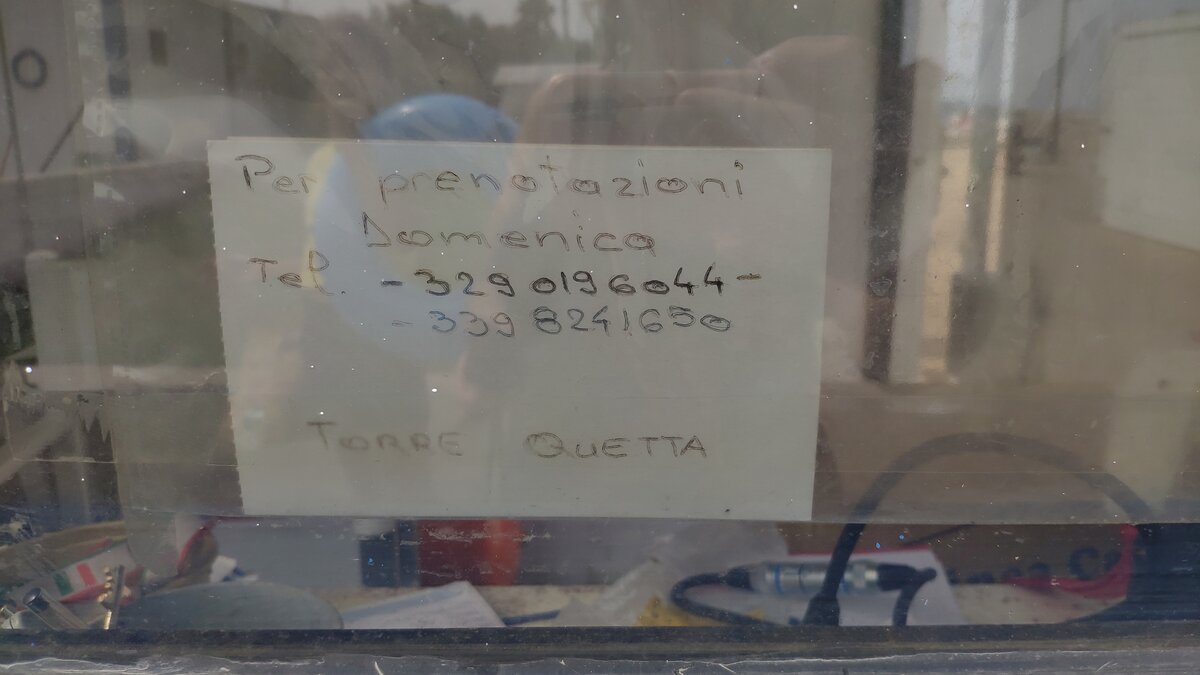 Per prenotazioni
Domenica
Tel. - 329 0196044 -
- 339 8241650
TORRE QUETTA